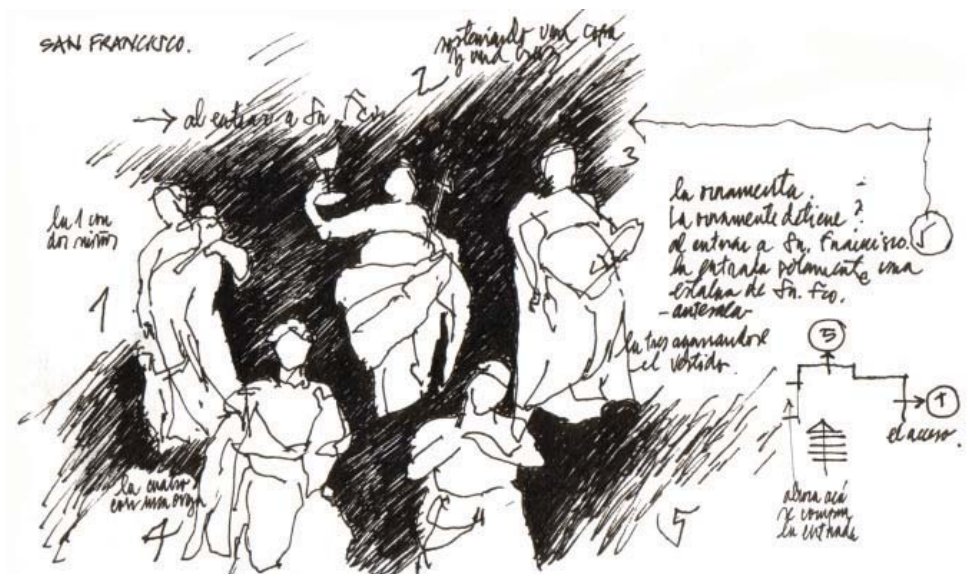 SAN FRANCISCO.
sosteniendo una copa
y una cruz
2
→ al entrar a Sn. Fco.
3
la 1 con
dos niños
1
la ornamenta.
La ornamente detiene ?
al entrar a Sn. Francisco.
la entrada solamente una
estatua de Sn. Fco.
- antesala -
la tres agarrandose
el vestido.
5
el acceso.
la cuatro
con una
4
5
ahora acá
se compra
la entrada